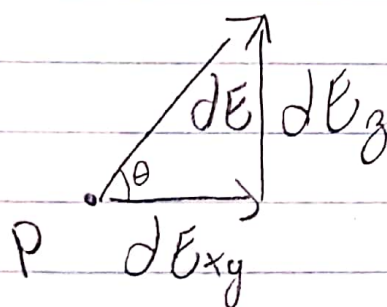 dE dE_z
θ
P dE_xy